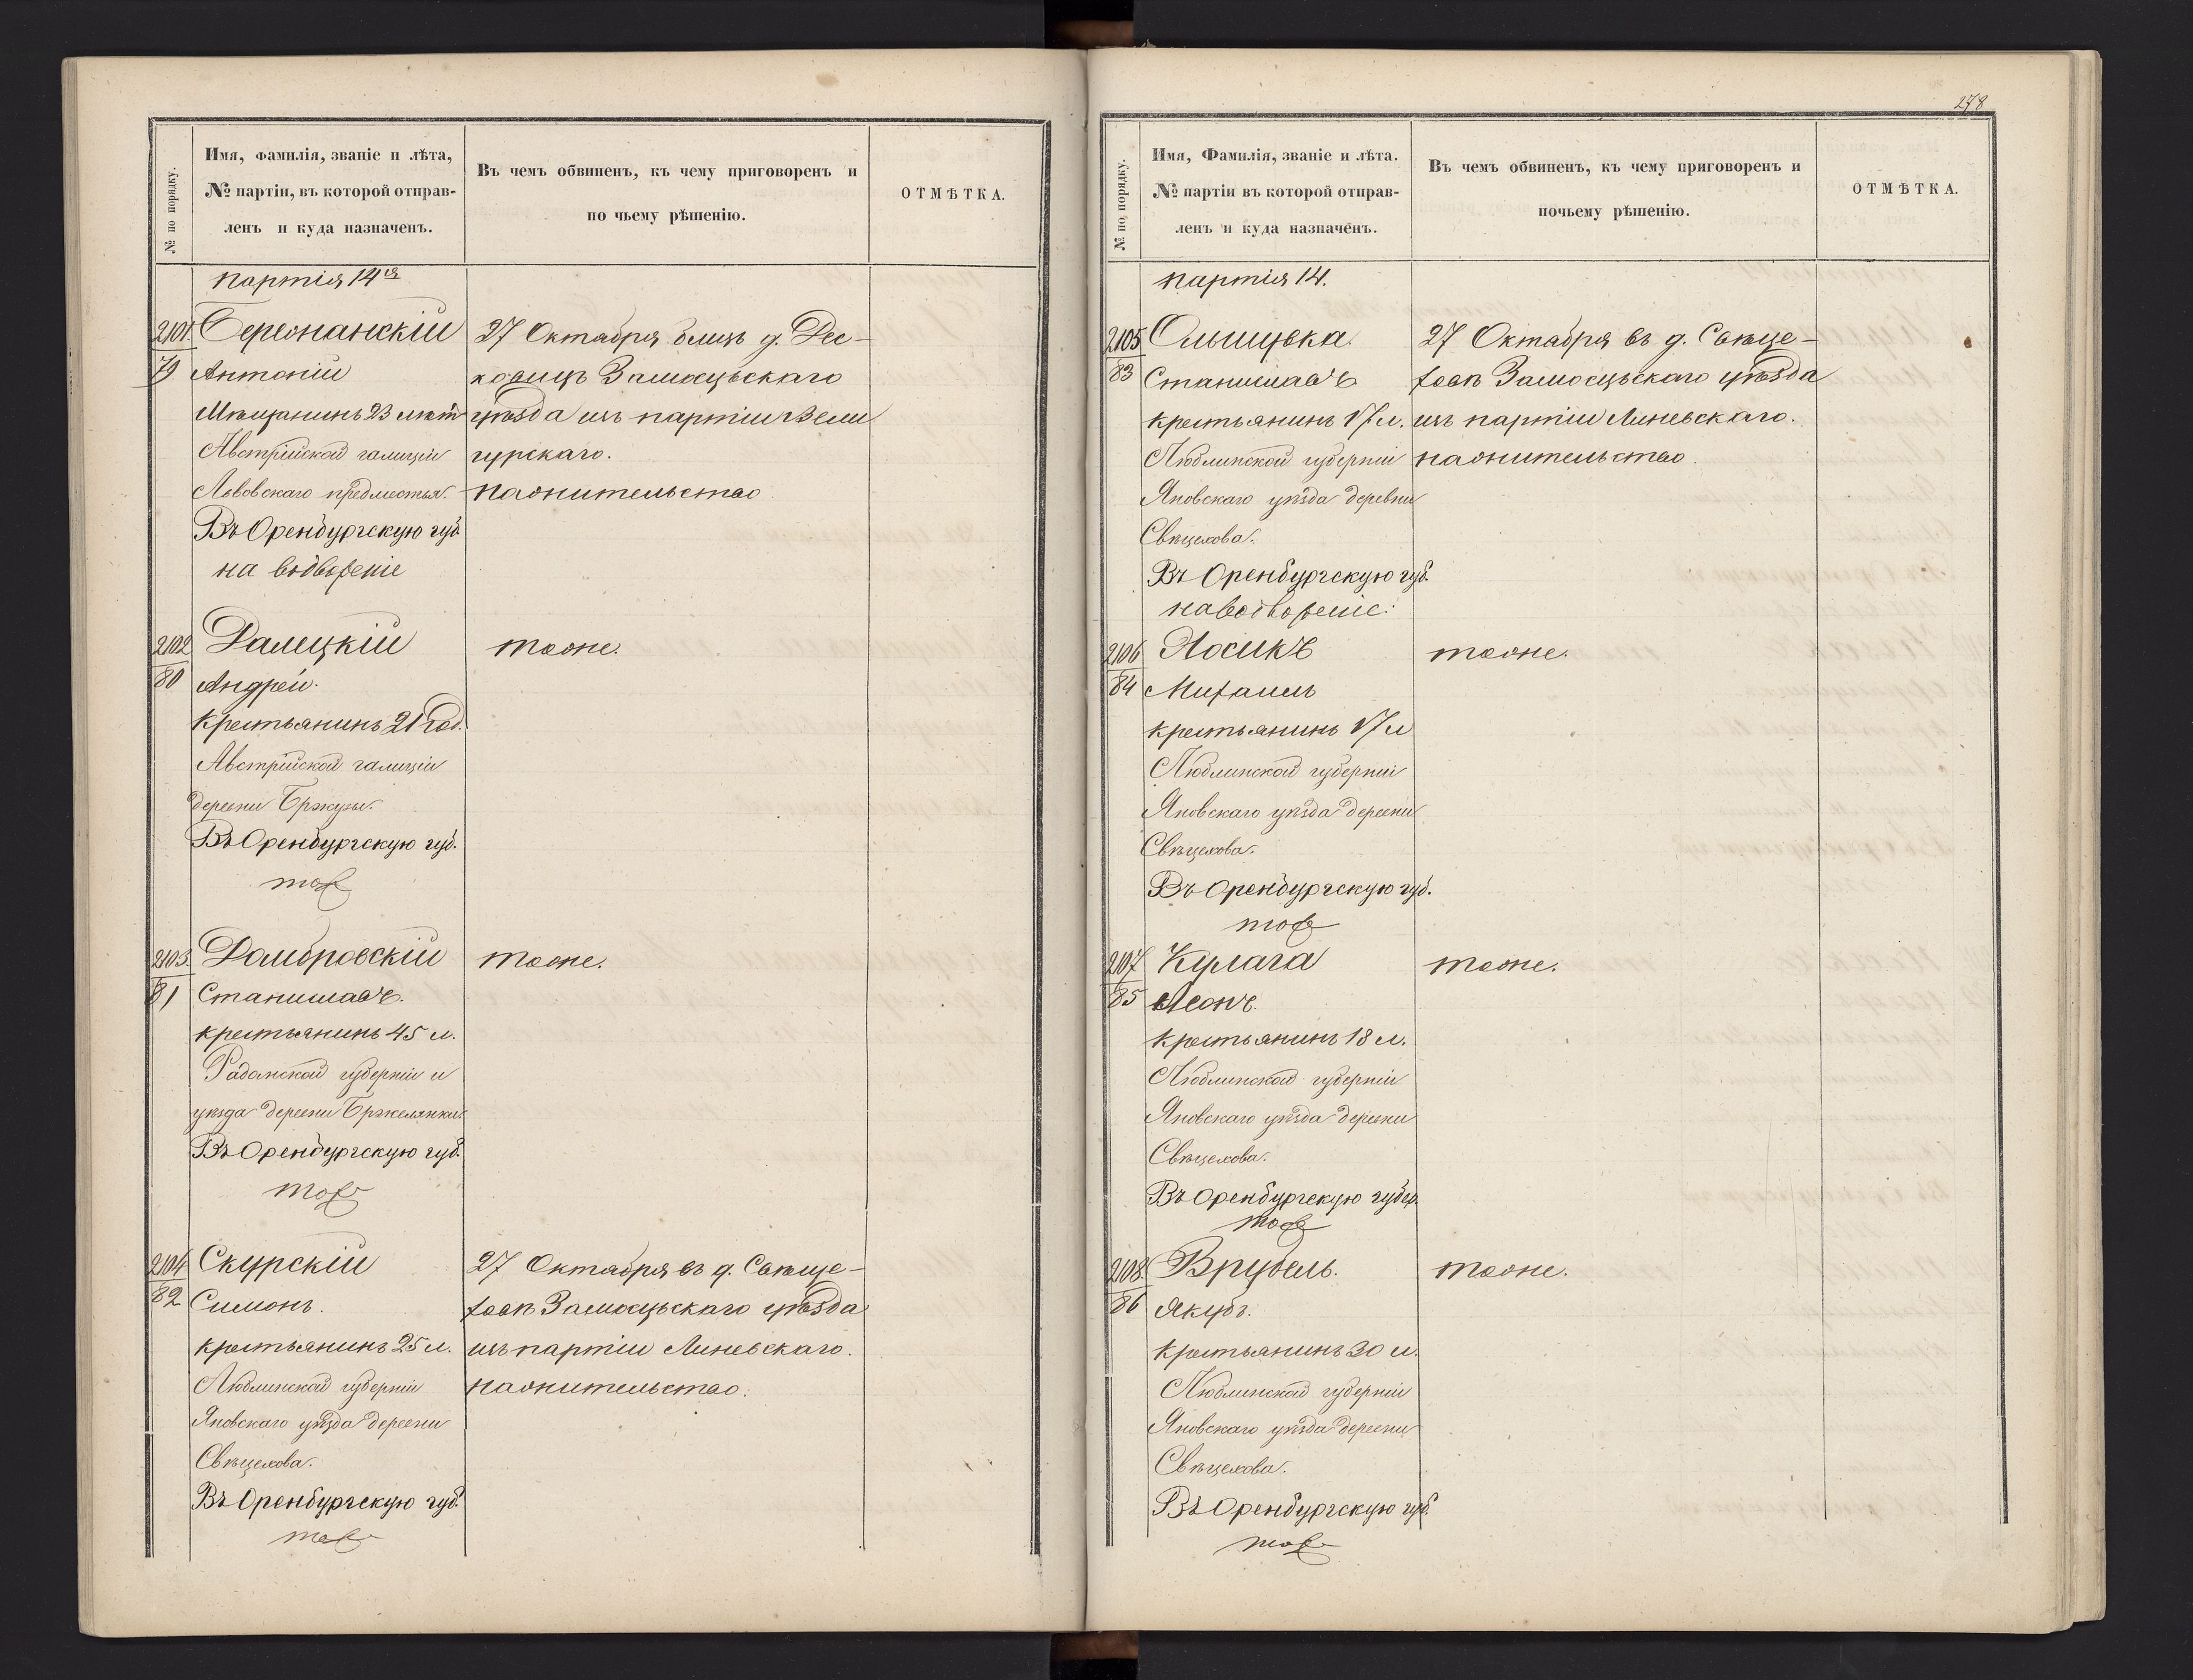 № по порядку.
Имя, фамилія, званіе и лѣта,
№ партіи, въ которой отправ-
ленъ и куда назначенъ.
Въ чемъ обвиненъ, къ чему приговоренъ и
по чьему рѣшенію.
ОТМѢТКА.
партія 14я
2101.
79
Антоній
Мѣщанинъ 23 лѣтъ
Австрійской галиціи
Львовскаго предместья.
Въ Оренбургскую губ.
на водвореніе
27 Октября близъ д. Дес-
Замосцьскаго
уѣзда изъ партіи Вели
гурскаго.
на жительство.
2102
80
Далецкій
Андрей.
крестьянинъ 21 год.
Австрійской галиціи
деревни
Въ Оренбургскую губ.
тоже
тоже.
2103.
81
Домбровскій
Станиславъ.
крестьянинъ 45 л.
Радомской губерніи и
уѣзда деревни Бржелянки
Въ Оренбургскую губ.
тоже
тоже.
2104
82
Скурскій
Симонъ.
крестьянинъ 25 л.
Люблинской губерніи
Яновскаго уѣзда деревни
Свѣцехова.
Въ Оренбургскую губ.
тоже
27 Октября въ д. Свѣце-
ховѣ Замосцьскаго уѣзда
изъ партіи Линевскаго.
на жительство.
278
№ по порядку.
Имя, Фамилія, званіе и лѣта.
№ партіи въ которой отправ-
ленъ и куда назначенъ.
Въ чемъ обвиненъ, къ чему приговоренъ и
почьему рѣшенію.
ОТМѢТКА.
партія 14.
2105
83
Ольшувка.
Станиславъ
крестьянинъ 17 л.
Люблинской губерніи
Яновскаго уѣзда деревни
Свѣцехова.
Въ Оренбургскую губ.
на водвореніе.
27 Октября въ д. Свѣце-
ховѣ Замосцьскаго уѣзда
изъ партіи Линевскаго.
на жительство.
2106
84
Лосикъ
Михаилъ
крестьянинъ 17 л
Люблинской губерніи
Яновскаго уѣзда деревни
Свѣцехова.
Въ Оренбургскую губ.
тоже
тоже.
2107
85
Кулага
Леонъ.
крестьянинъ 18 л.
Люблинской губерніи
Яновскаго уѣзда деревни
Свѣцехова.
Въ Оренбургскую губер.
тоже
тоже.
2108.
86
Врубель.
Якубъ.
крестьянинъ 30 л.
Люблинской губерніи
Яновскаго уѣзда деревни
Свѣцехова.
Въ Оренбургскую губ.
тоже
тоже.